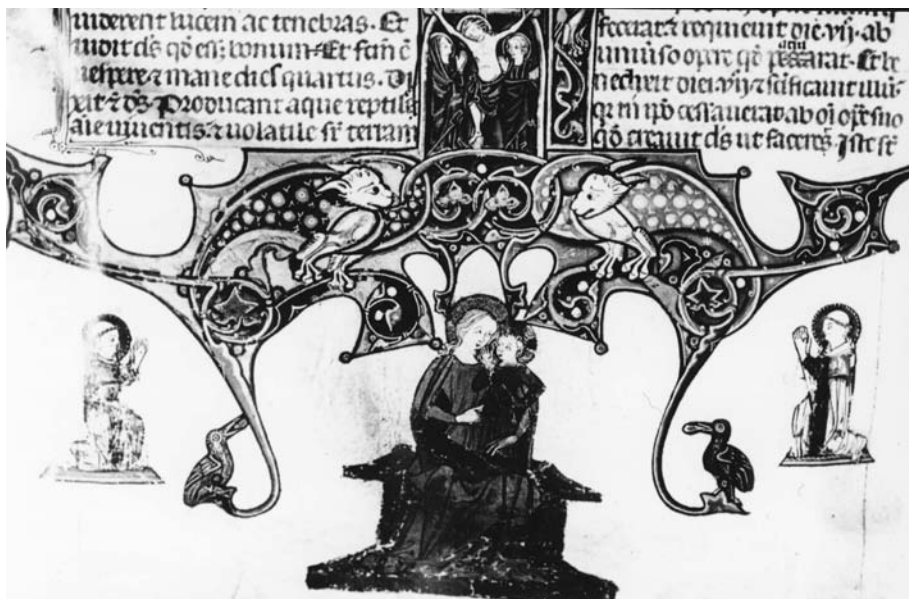 uiderent lucem ac tenebras. Et
uidit ds̄ qđ eēt bonum. Et fcm̄ ē
uespere ⁊ mane dies quartus. Di
xit ⁊ ds̄. Producant aque reptile
aīe uiuentis ⁊ uolatile sr̄ terram
fecerat ⁊ requieuit die vij. ab
uniuso opere qđ Et be
nedixit diei vij ⁊ scīficauit
qr in ipō cessauerat ab oī ope suo
qđ creauit ds̄ ut faceret. Iste st̄